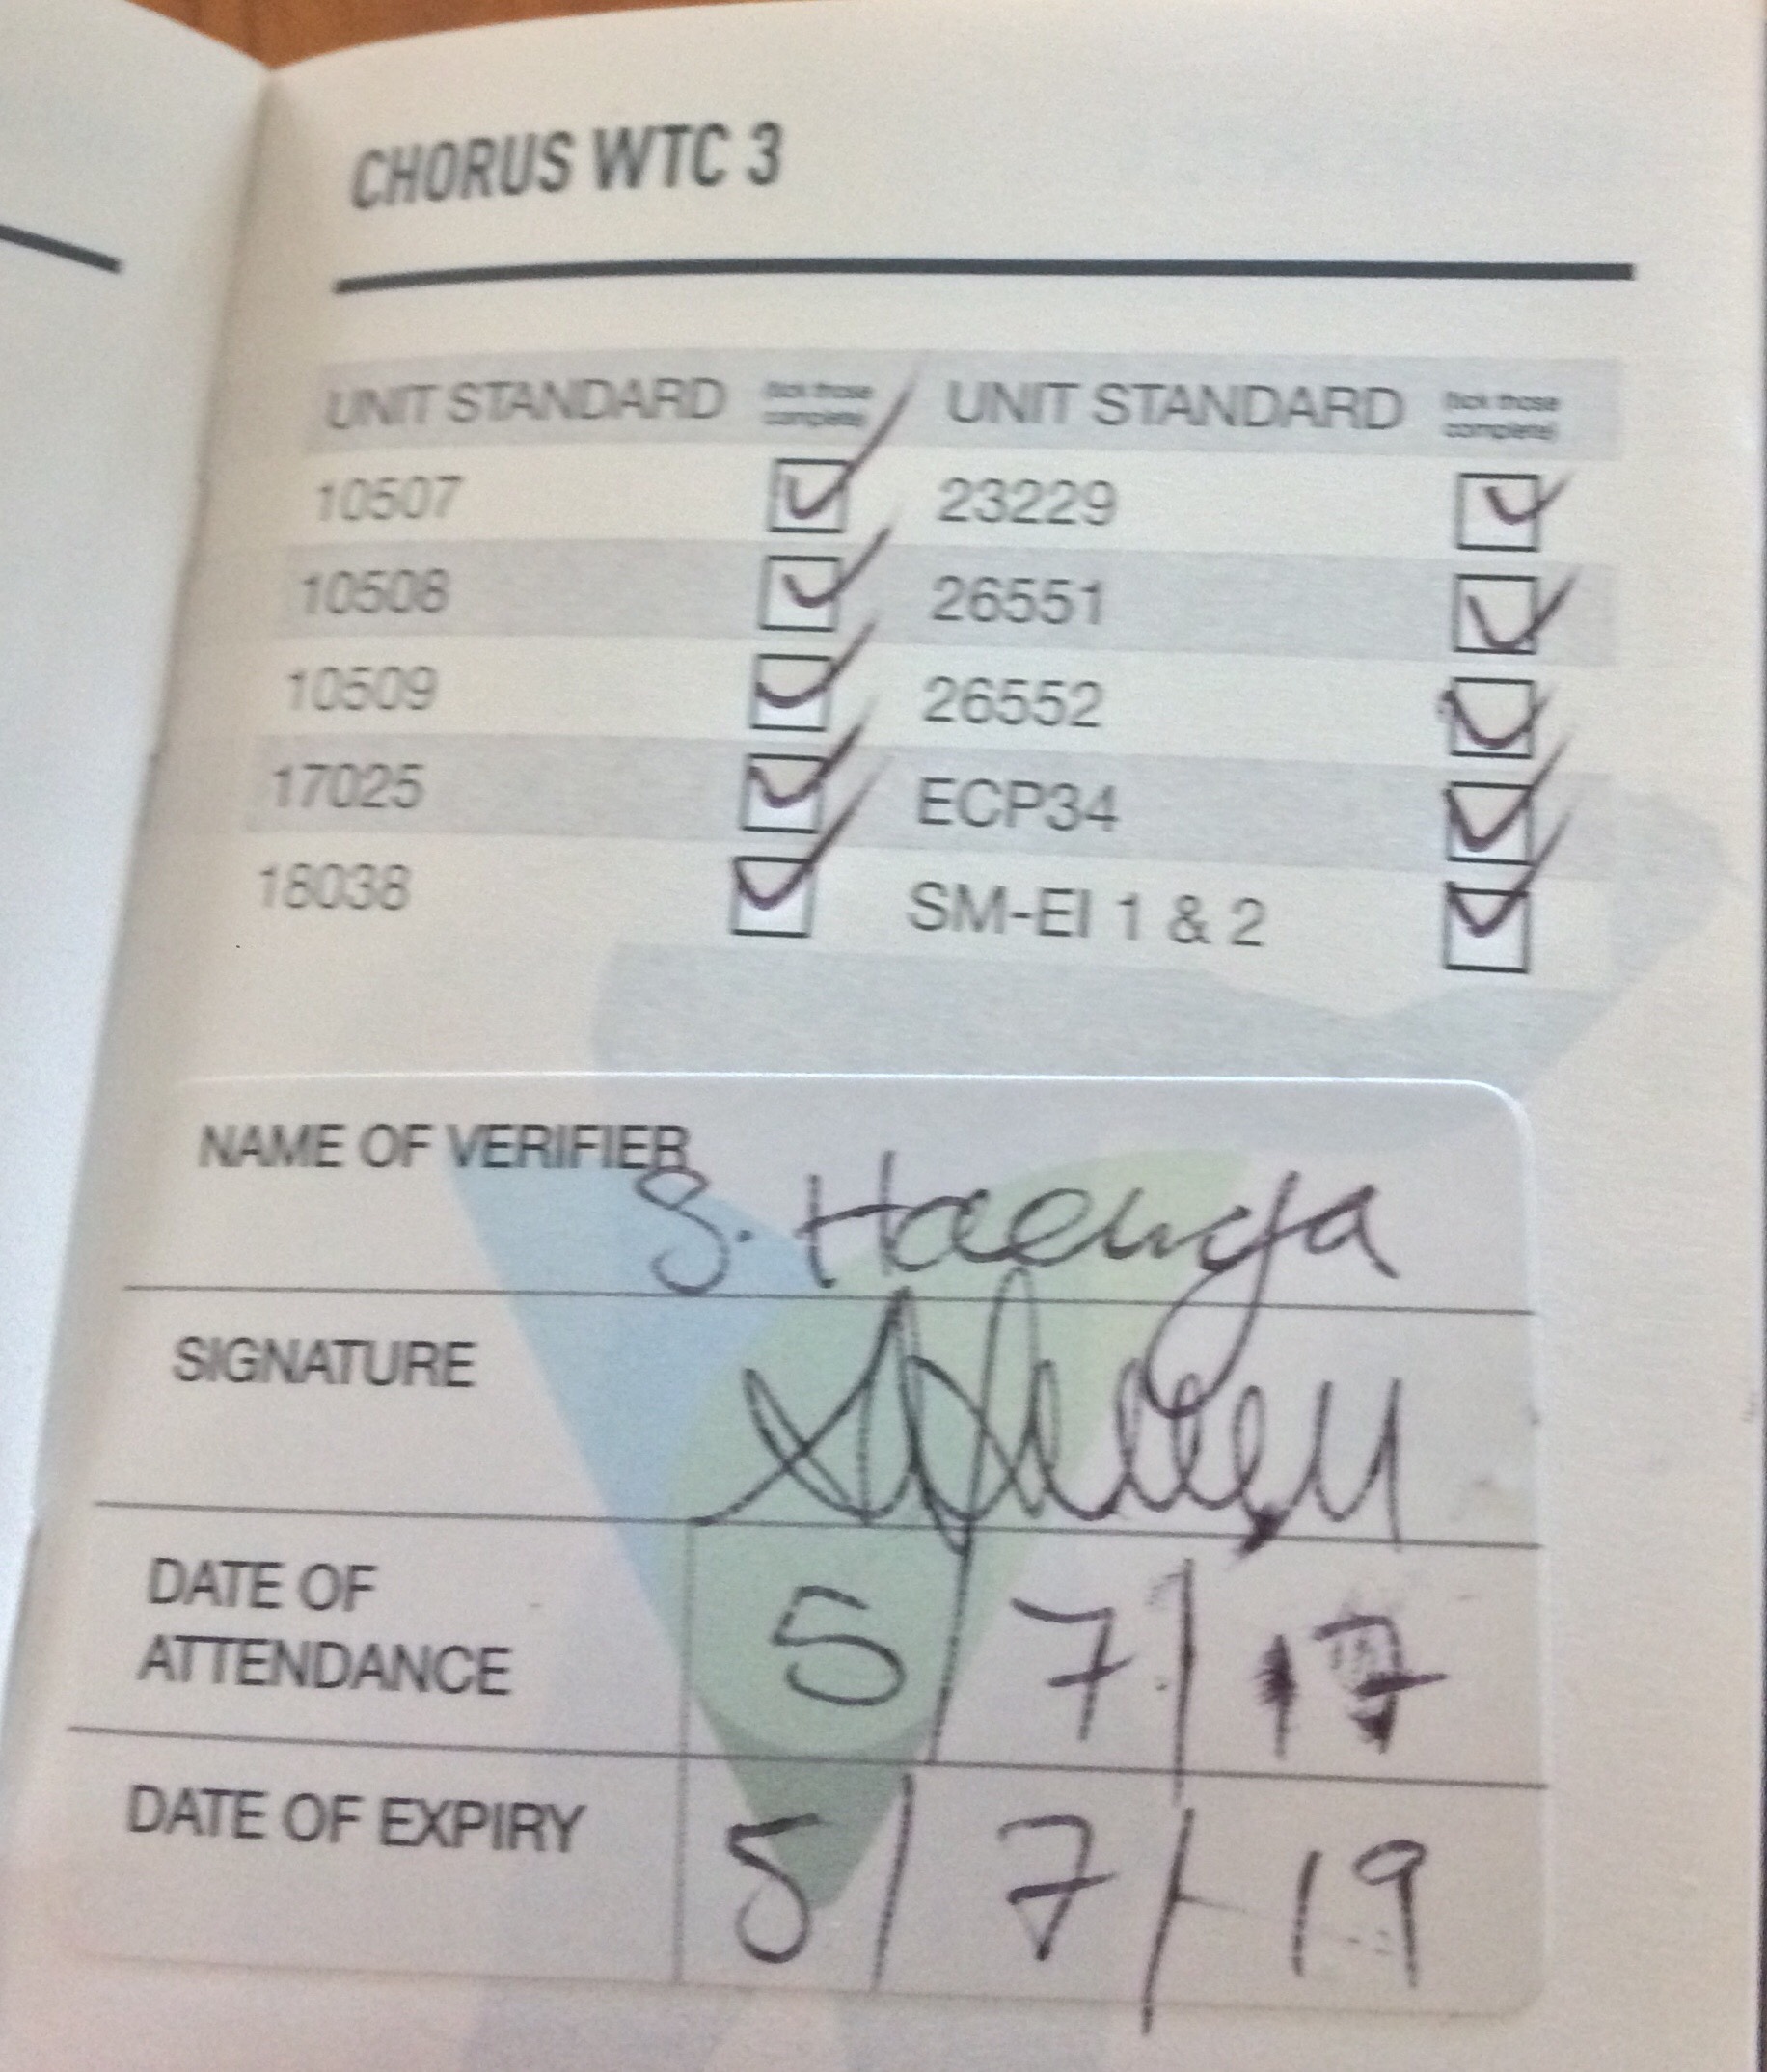 CHORUS WTC 3
UNIT STANDARD (tick those complete) UNIT STANDARD (tick those complete)
10507 23229
10508 26551
10509 26552
17025 ECP34
18038 SM-EI 1 & 2
NAME OF VERIFIER S. Haenga
SIGNATURE
DATE OF ATTENDANCE 5/7/17
DATE OF EXPIRY 5/7/19